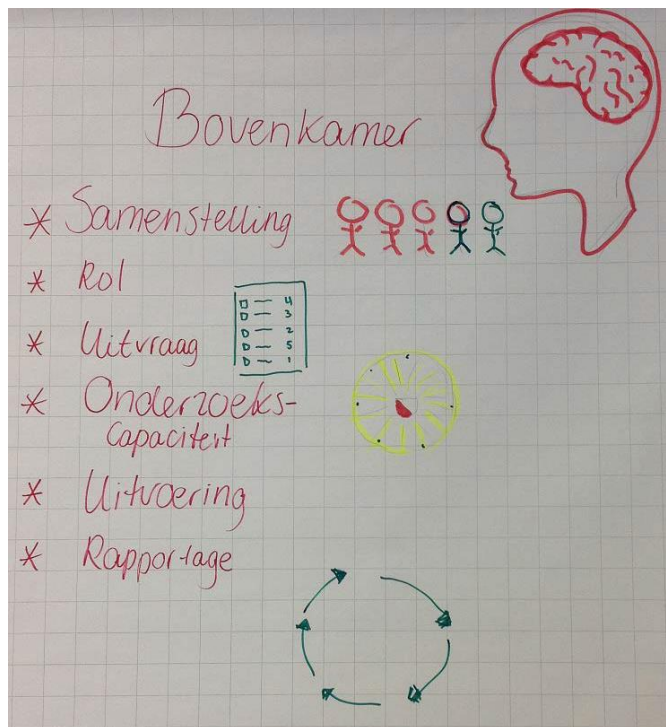 Bovenkamer
* Samenstelling
* Rol
* Uitvraag
— 4
— 3
— 2
— 5
— 1
* Onderzoeks-
Capaciteit
* Uitvoering
* Rapportage